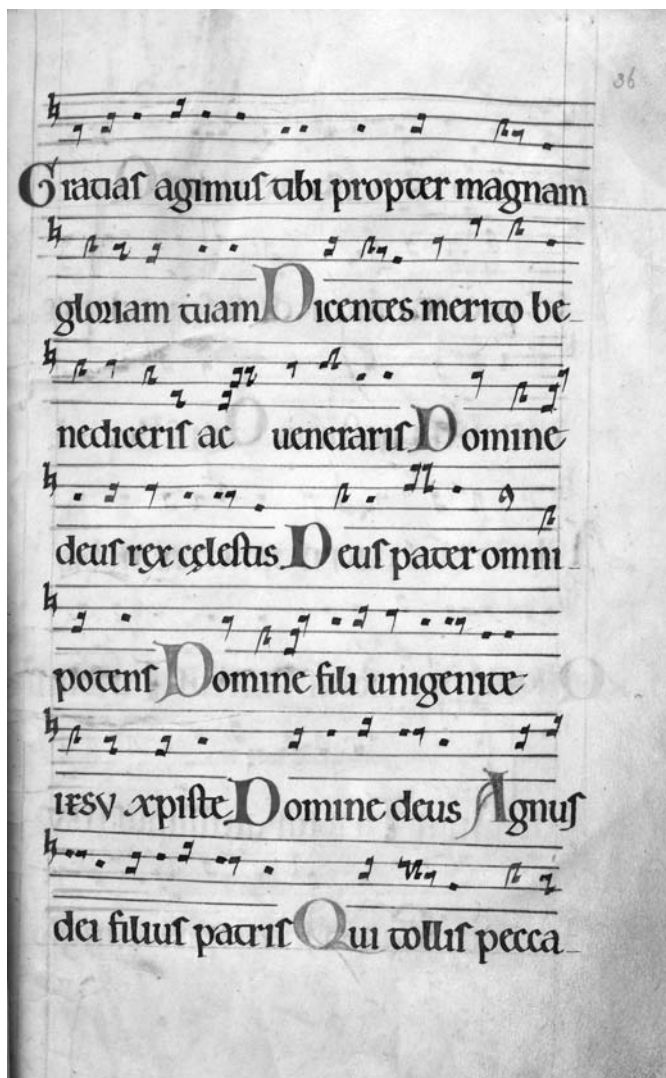 36
Gratias agimus tibi propter magnam
gloriam tuam Dicentes merito be
nediceris ac ueneraris Domine
deus rex cęlestis Deus pater omni
potens Domine fili unigenite
iesv xpiste Domine deus Agnus
dei filius patris Qui tollis pecca